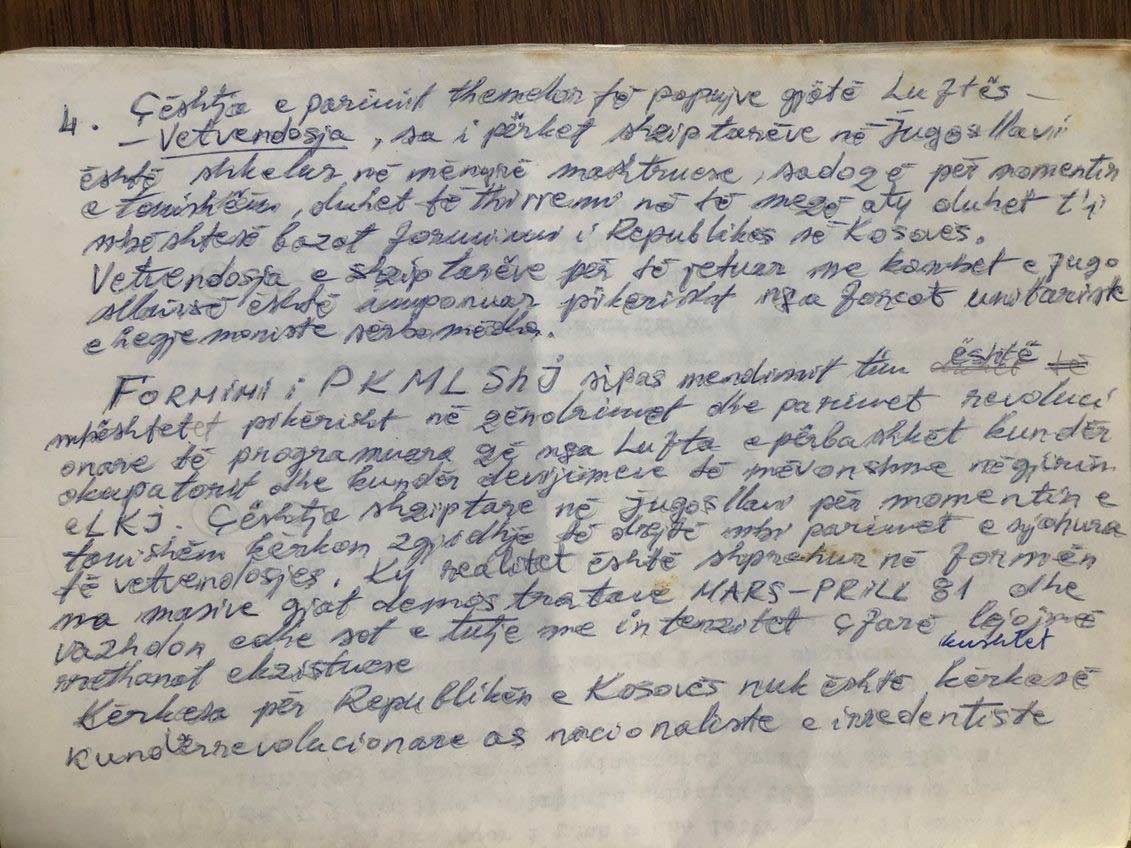 4. Çështja e parimit themelor të popujve gjatë Luftës –
– Vetvendosja, sa i përket shqiptarëve në Jugosllavi
është shkelur në mënyrë mashtruese, sadoqë për momentin
e tanishëm, duhet të thirremi në të meqë aty duhet t'i
mbështesë bazat formimi i Republikës së Kosovës.
Vetvendosja e shqiptarëve për të jetuar me kombet e Jugo
sllavisë është imponuar pikërisht nga forcat unitariste
e hegjemoniste serbomëdha.
FORMIMI i PKMLSHJ sipas mendimit tim është
mbështetet pikërisht në qëndrimet dhe parimet revoluci
onare të programuara që nga Lufta e përbashkët kundër
okupatorit dhe kundër devijimeve të mëvonshme në gjirin
e LKJ. Çështja shqiptare në Jugosllavi për momentin e
tanishëm kërkon zgjidhje të drejtë mbi parimet e njohura
të vetvendosjes. Ky realitet është shprehur në formën
ma masive gjat demostratave MARS-PRILL 81 dhe
vazhdon edhe sot e tutje me intenzitet çfarë lejojmë
kushtet
rrethanat ekzistuese
Kërkesa për Republikën e Kosovës nuk është kërkesë
kundërrevolucionare as nacionaliste e irredentiste